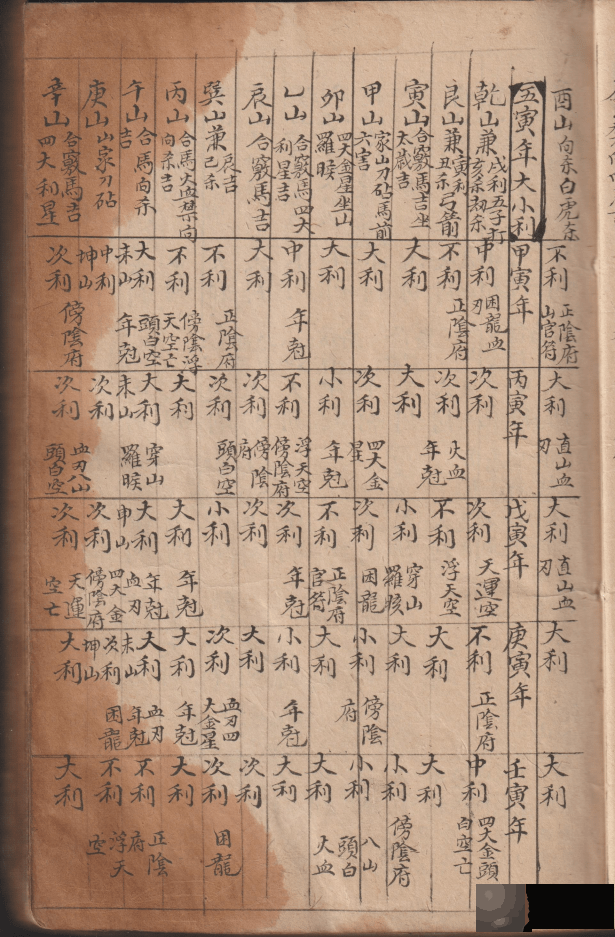 酉山向杀白虎杀
不利 正陰府山官符
大利 直山血刃
大利 直山血刃
大利
大利
五寅年大小利
甲寅年
丙寅年
戊寅年
庚寅年
壬寅年
乾山兼戌利五子打亥杀刼杀
中利 困龍血刃
次利
次利 天運空
不利 正陰府
中利 四大金頭白空亡
艮山兼寅利丑杀弓箭
不利 正陰府
次利 火血年尅
不利 浮天空
大利
大利
寅山合竅馬吉坐大歲吉
大利
大利
小利 穿山羅睺
大利
小利 傍陰府
甲山家山刀砧馬前六害
大利
次利 四大金星
次利 困龍
小利 傍陰府
小利 八山頭白
卯山四大金星坐山羅睺
大利
小利 年尅
不利 正陰府官符
大利
大利 火血
乙山合竅馬四大利星吉
中利 年尅
不利 浮天空傍陰府
次利 年尅
小利 年尅
大利
辰山合竅馬吉
大利
次利 傍陰府
次利
大利
次利
巽山兼辰吉巳杀
不利 正陰府
次利 頭白空
小利
次利 血刃四大金星
次利 困龍
丙山合馬火血禁向向杀吉
不利 傍陰浮天空亡
大利
大利 年尅
大利 年尅
大利
午山合馬向杀吉
大利 未山 頭白空年尅
大利 未山 穿山羅睺
大利 申山 年尅血刃
大利 未山 血刃年尅
不利 正陰府
庚山山家刀砧
中利 坤山
次利
次利 四大金傍陰府
次利 坤山 困龍
不利 浮天空
辛山合竅馬吉四大利星
次利 傍陰府
次利 血刃八山頭白空
次利 天運空亡
大利
大利